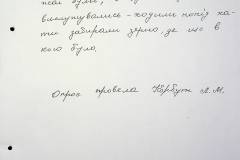 вишукувались – ходили попід ха-
ти забирали зерно, де що в
кого було.
Опрос провела Корбут Л.М.